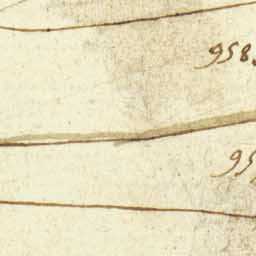 958
95